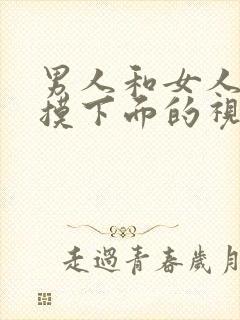 男人和女人
摸下而的視
走過青春歲月